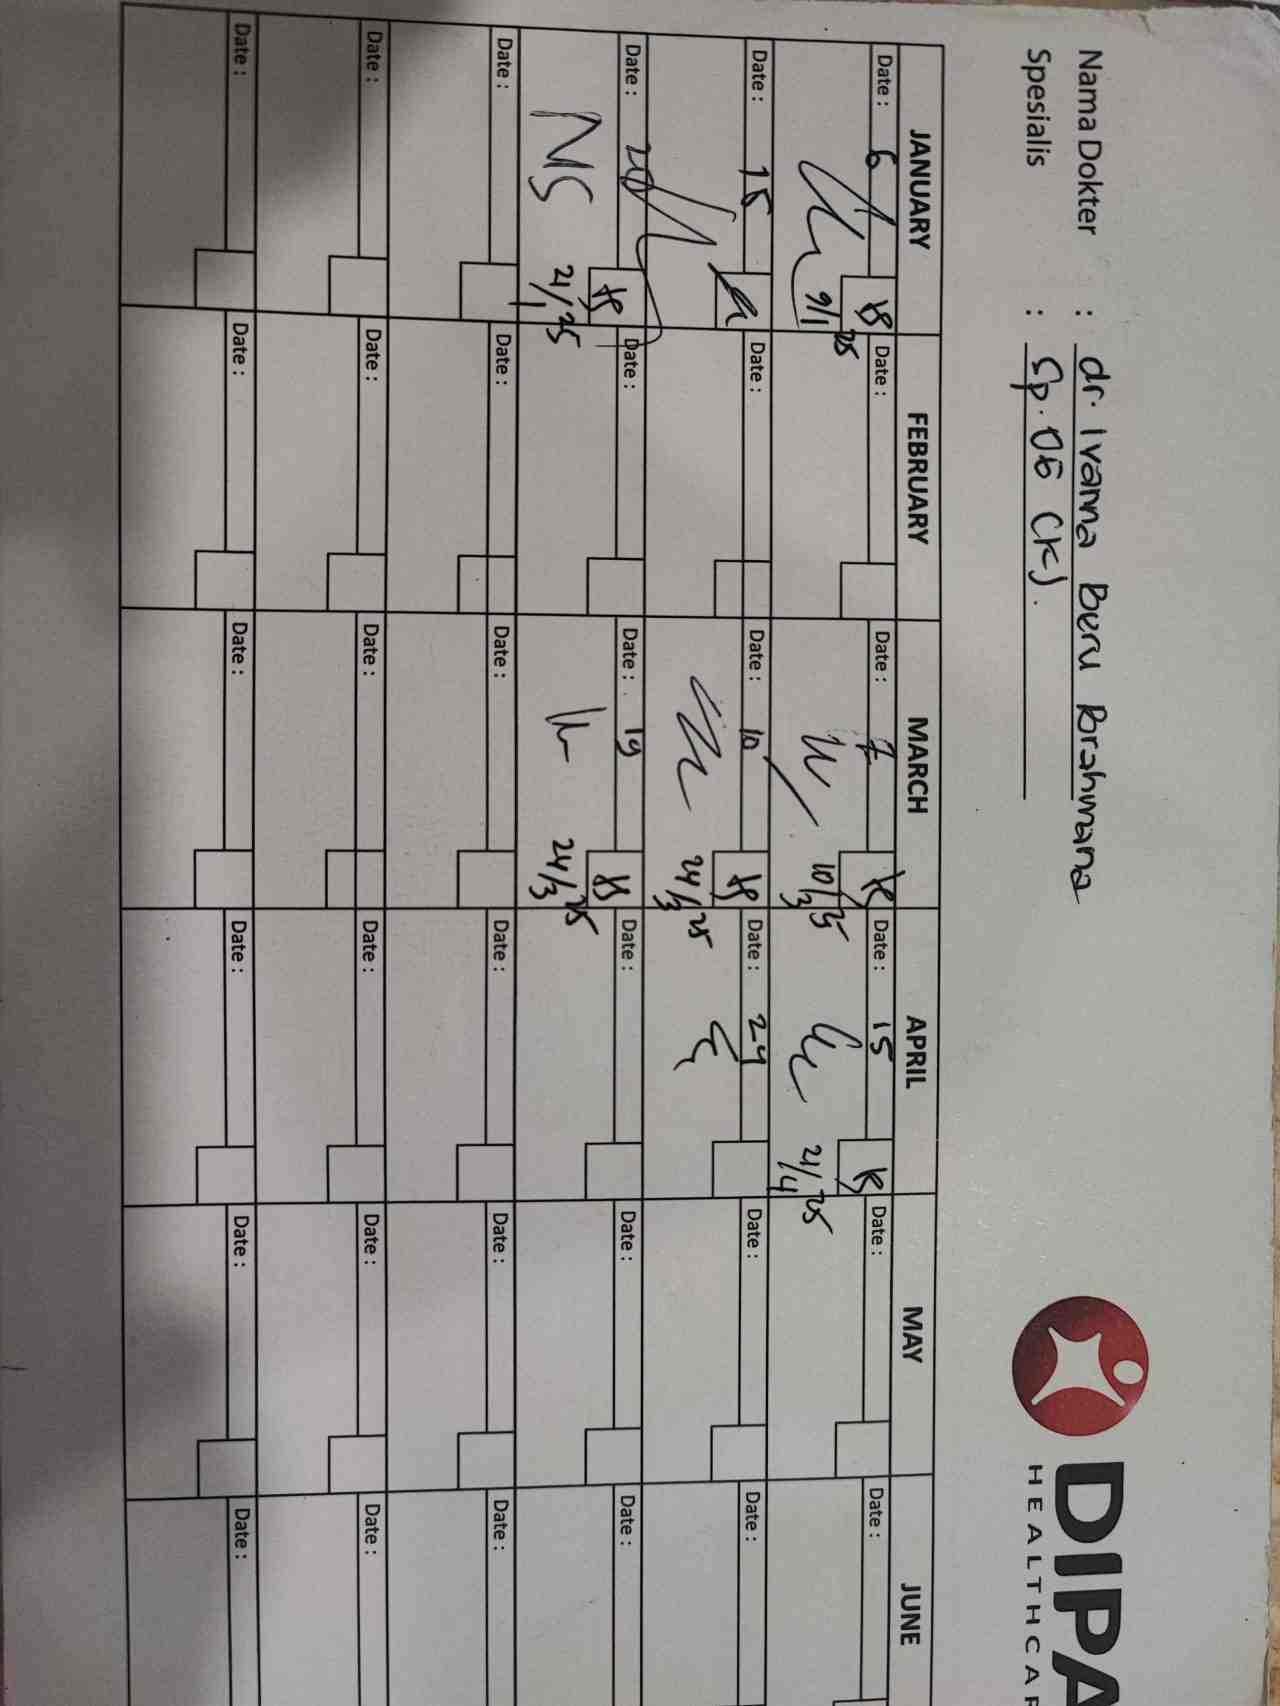 Nama Dokter : dr. Ivanna Beru Brahmana
Spesialis : Sp. OG (K).
DIPA
HEALTHCAR
JANUARY FEBRUARY MARCH APRIL MAY JUNE
Date : 6 Date : Date : 7 Date : 15 Date : Date :
9/1 25 10/3 25 21/4 25
Date : 15 Date : Date : 10 Date : 24 Date : Date :
24/3 25
Date : 20 Date : Date : 19 Date : Date : Date :
21/1 25 24/3 25
Date : Date : Date : Date : Date : Date :
Date : Date : Date : Date : Date : Date :
Date : Date : Date : Date : Date : Date :